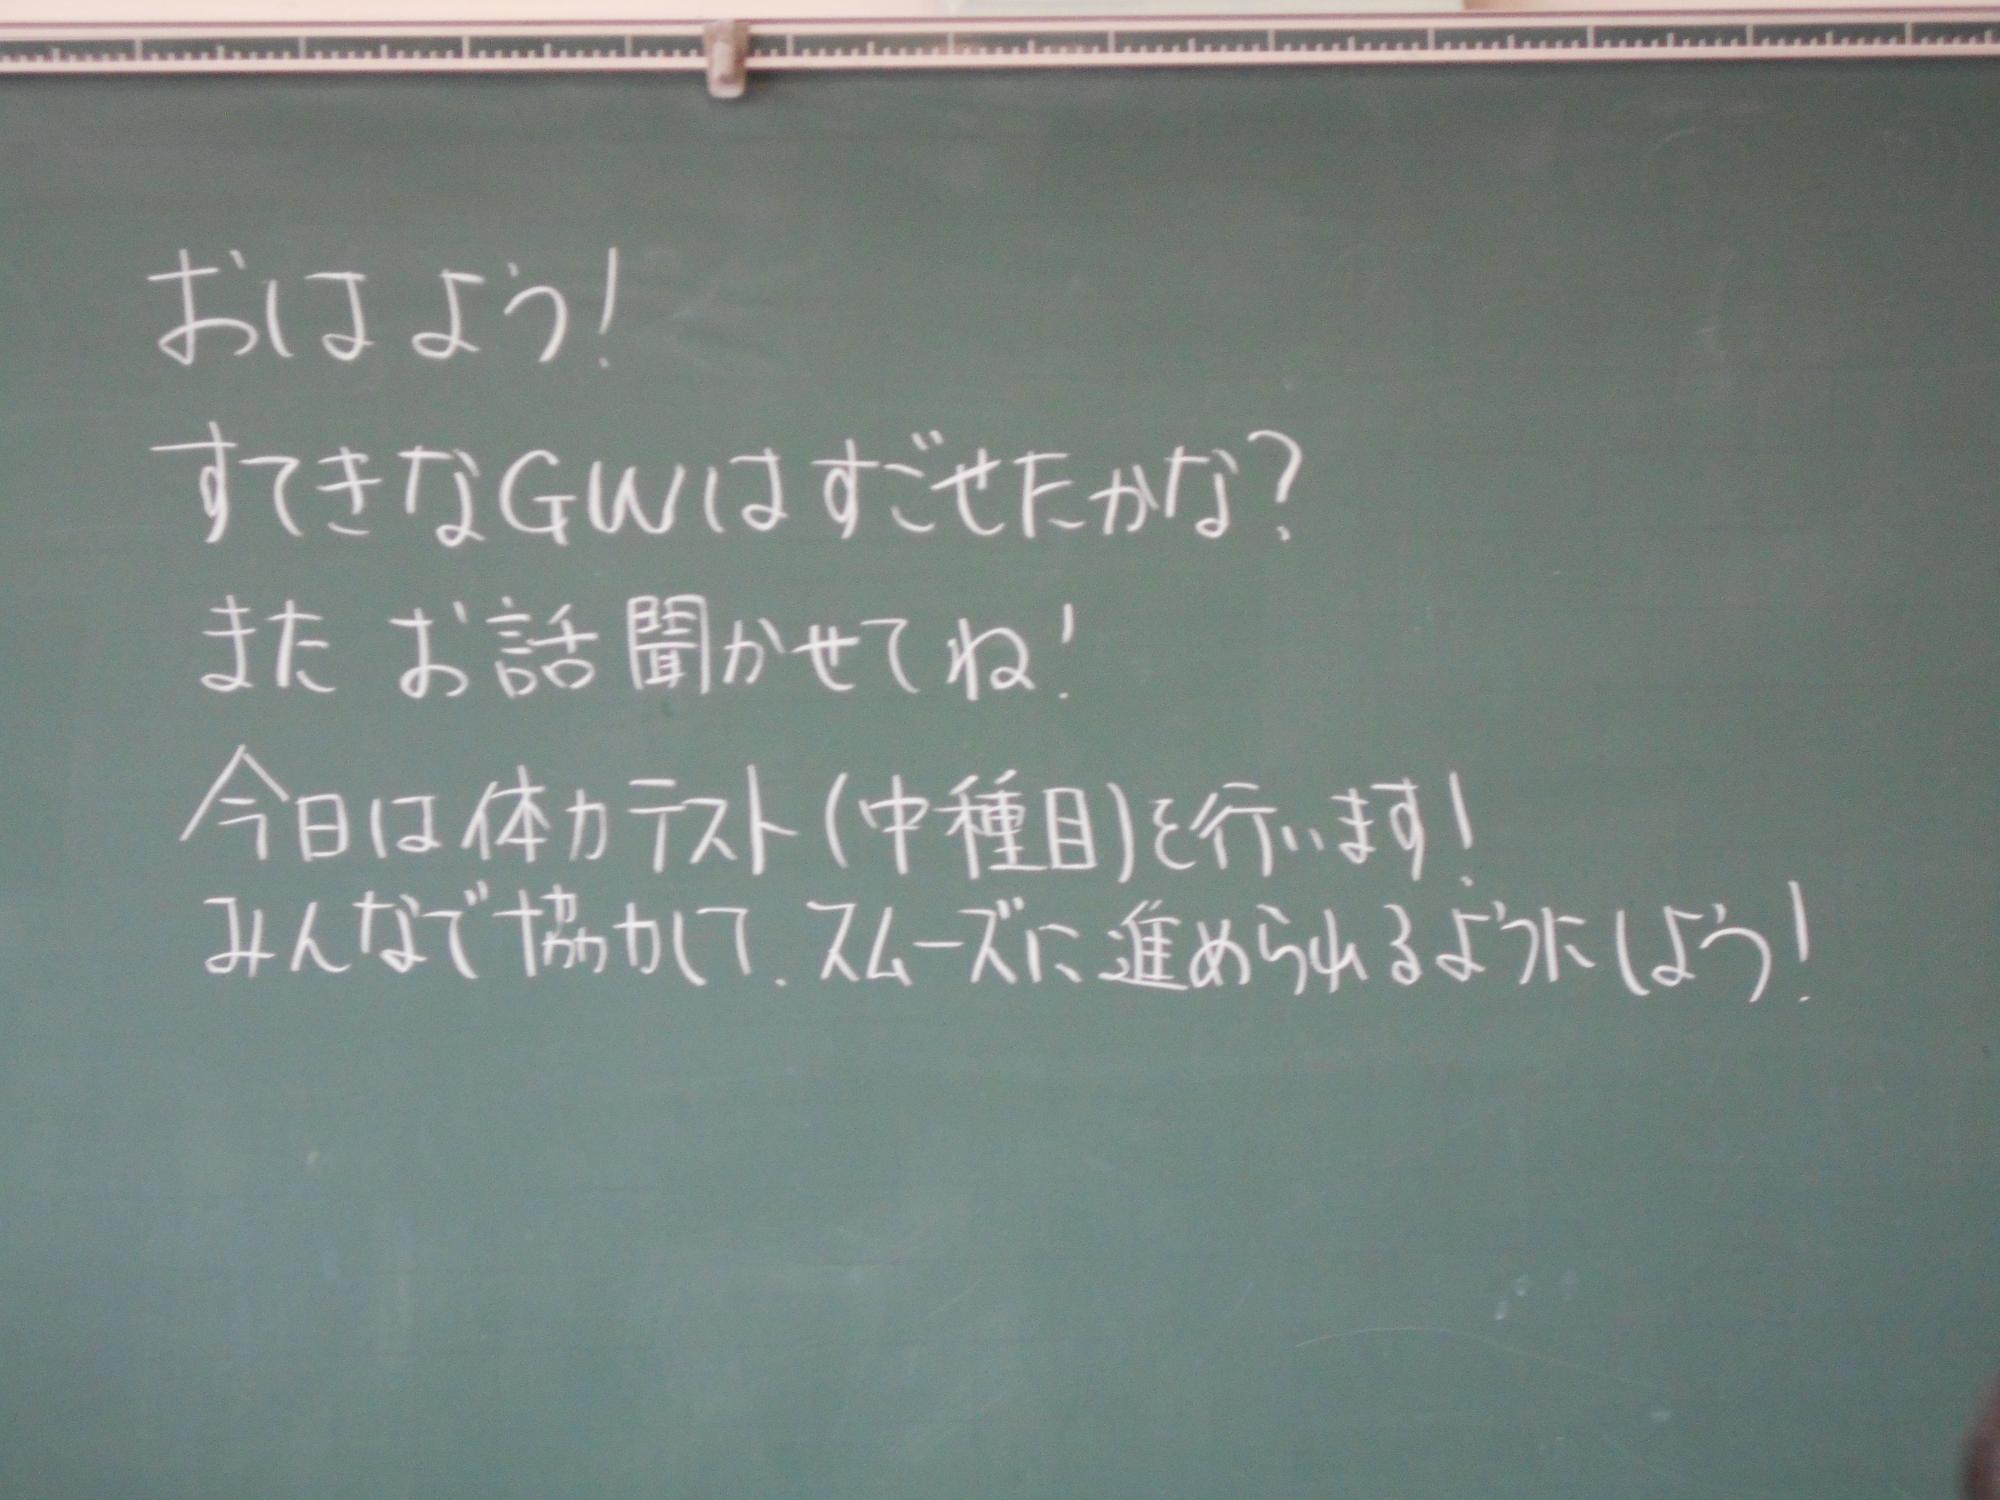 おはよう!
すてきなGWはすごせたかな?
また お話聞かせてね!
今日は体力テスト(中種目)を行います!
みんなで協力して、スムーズに進められるようにしよう!